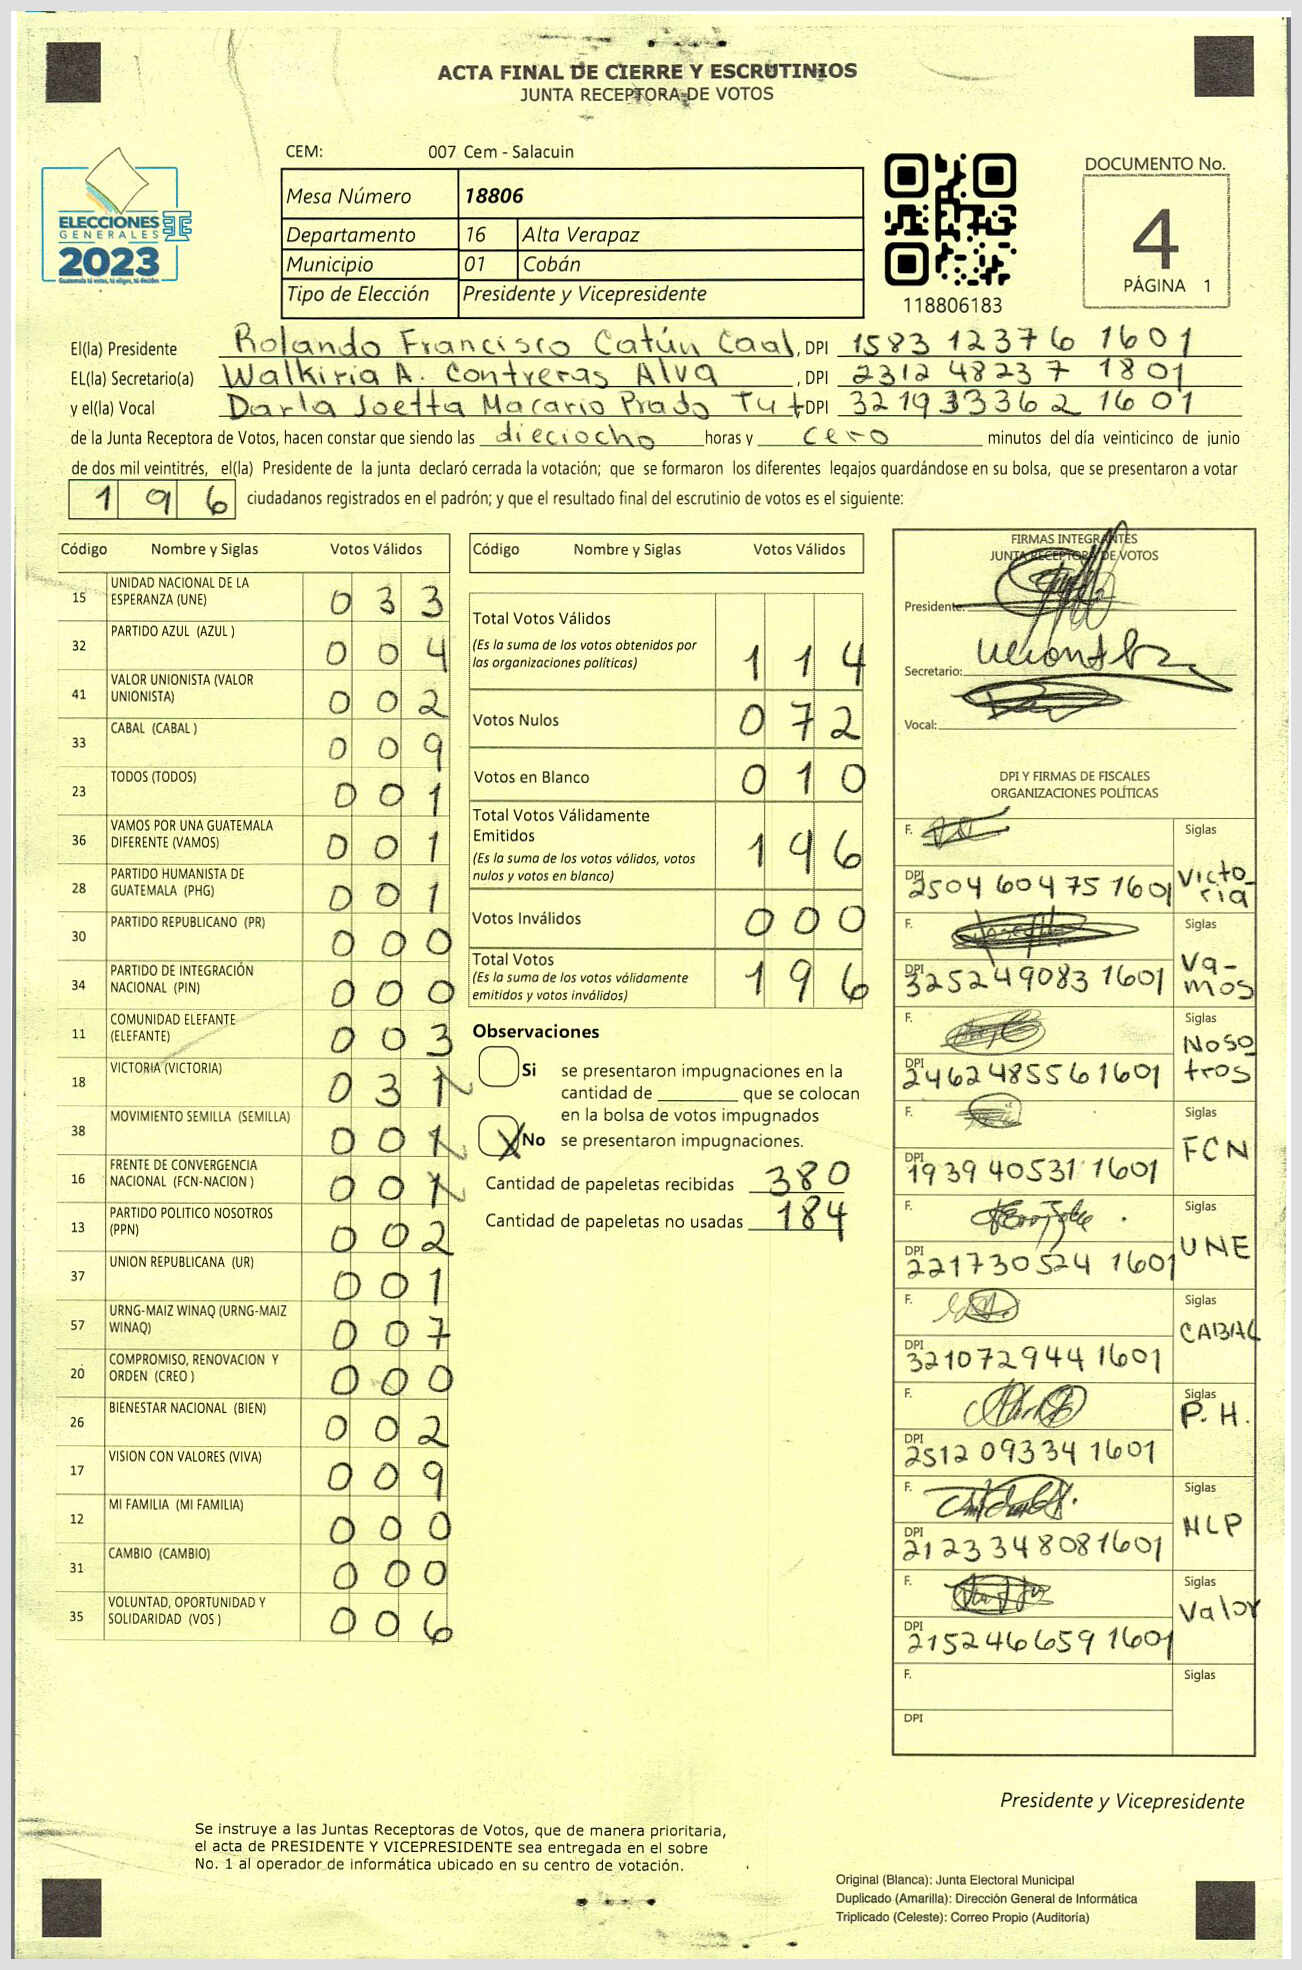 ACTA FINAL DE CIERRE Y ESCRUTINIOS
JUNTA RECEPTORA DE VOTOS
CEM: 007 Cem - Salacuin
ELECCIONES
GENERALES
2023
Mesa Número 18806
Departamento 16 Alta Verapaz
Municipio 01 Cobán
Tipo de Elección Presidente y Vicepresidente
118806183
DOCUMENTO No.
4
PÁGINA 1
El(la) Presidente Rolando Francisco Catún Caal, DPI 1583 12376 1601
EL(la) Secretario(a) Walkiria A. Contreras Alva, DPI 2312 48237 1801
y el(la) Vocal Darla Joetta Macario Prado Tut DPI 3219 33362 1601
de la Junta Receptora de Votos, hacen constar que siendo las dieciocho horas y cero minutos del día veinticinco de junio
de dos mil veintitrés, el(la) Presidente de la junta declaró cerrada la votación; que se formaron los diferentes legajos guardándose en su bolsa, que se presentaron a votar
196 ciudadanos registrados en el padrón; y que el resultado final del escrutinio de votos es el siguiente:
Código Nombre y Siglas Votos Válidos
15 UNIDAD NACIONAL DE LA
ESPERANZA (UNE) 033
32 PARTIDO AZUL (AZUL ) 004
41 VALOR UNIONISTA (VALOR
UNIONISTA) 002
33 CABAL (CABAL ) 009
23 TODOS (TODOS) 001
36 VAMOS POR UNA GUATEMALA
DIFERENTE (VAMOS) 001
28 PARTIDO HUMANISTA DE
GUATEMALA (PHG) 001
30 PARTIDO REPUBLICANO (PR) 000
34 PARTIDO DE INTEGRACIÓN
NACIONAL (PIN) 000
11 COMUNIDAD ELEFANTE
(ELEFANTE) 003
18 VICTORIA (VICTORIA) 031
38 MOVIMIENTO SEMILLA (SEMILLA) 001
16 FRENTE DE CONVERGENCIA
NACIONAL (FCN-NACION ) 001
13 PARTIDO POLITICO NOSOTROS
(PPN) 002
37 UNION REPUBLICANA (UR) 001
57 URNG-MAIZ WINAQ (URNG-MAIZ
WINAQ) 007
20 COMPROMISO, RENOVACION Y
ORDEN (CREO ) 000
26 BIENESTAR NACIONAL (BIEN) 002
17 VISION CON VALORES (VIVA) 009
12 MI FAMILIA (MI FAMILIA) 000
31 CAMBIO (CAMBIO) 000
35 VOLUNTAD, OPORTUNIDAD Y
SOLIDARIDAD (VOS ) 006
Código Nombre y Siglas Votos Válidos
Total Votos Válidos
(Es la suma de los votos obtenidos por
las organizaciones políticas) 114
Votos Nulos 072
Votos en Blanco 010
Total Votos Válidamente
Emitidos
(Es la suma de los votos válidos, votos
nulos y votos en blanco) 196
Votos Inválidos 000
Total Votos
(Es la suma de los votos válidamente
emitidos y votos inválidos) 196
Observaciones
Si se presentaron impugnaciones en la
cantidad de ________ que se colocan
en la bolsa de votos impugnados
X No se presentaron impugnaciones.
Cantidad de papeletas recibidas 380
Cantidad de papeletas no usadas 184
FIRMAS INTEGRANTES
JUNTA RECEPTORA DE VOTOS
Presidente:
Secretario:
Vocal:
DPI Y FIRMAS DE FISCALES
ORGANIZACIONES POLÍTICAS
F. Siglas
DPI 2504 60475 1601 Victo-
ria
F. Siglas
DPI 3252 49083 1601 Va-
mos
F. Siglas
DPI 2462 48556 1601 Noso
tros
F. Siglas
DPI 1939 40531 1601 FCN
F. Siglas
DPI 2217 30524 1601 UNE
F. Siglas
DPI 3210 72944 1601 CABAL
F. Siglas
DPI 2512 09334 1601 P. H.
F. Siglas
DPI 2123 34808 1601 NLP
F. Siglas
DPI 2152 46659 1601 Valor
F. Siglas
DPI
Presidente y Vicepresidente
Se instruye a las Juntas Receptoras de Votos, que de manera prioritaria,
el acta de PRESIDENTE Y VICEPRESIDENTE sea entregada en el sobre
No. 1 al operador de informática ubicado en su centro de votación.
Original (Blanca): Junta Electoral Municipal
Duplicado (Amarilla): Dirección General de Informática
Triplicado (Celeste): Correo Propio (Auditoría)